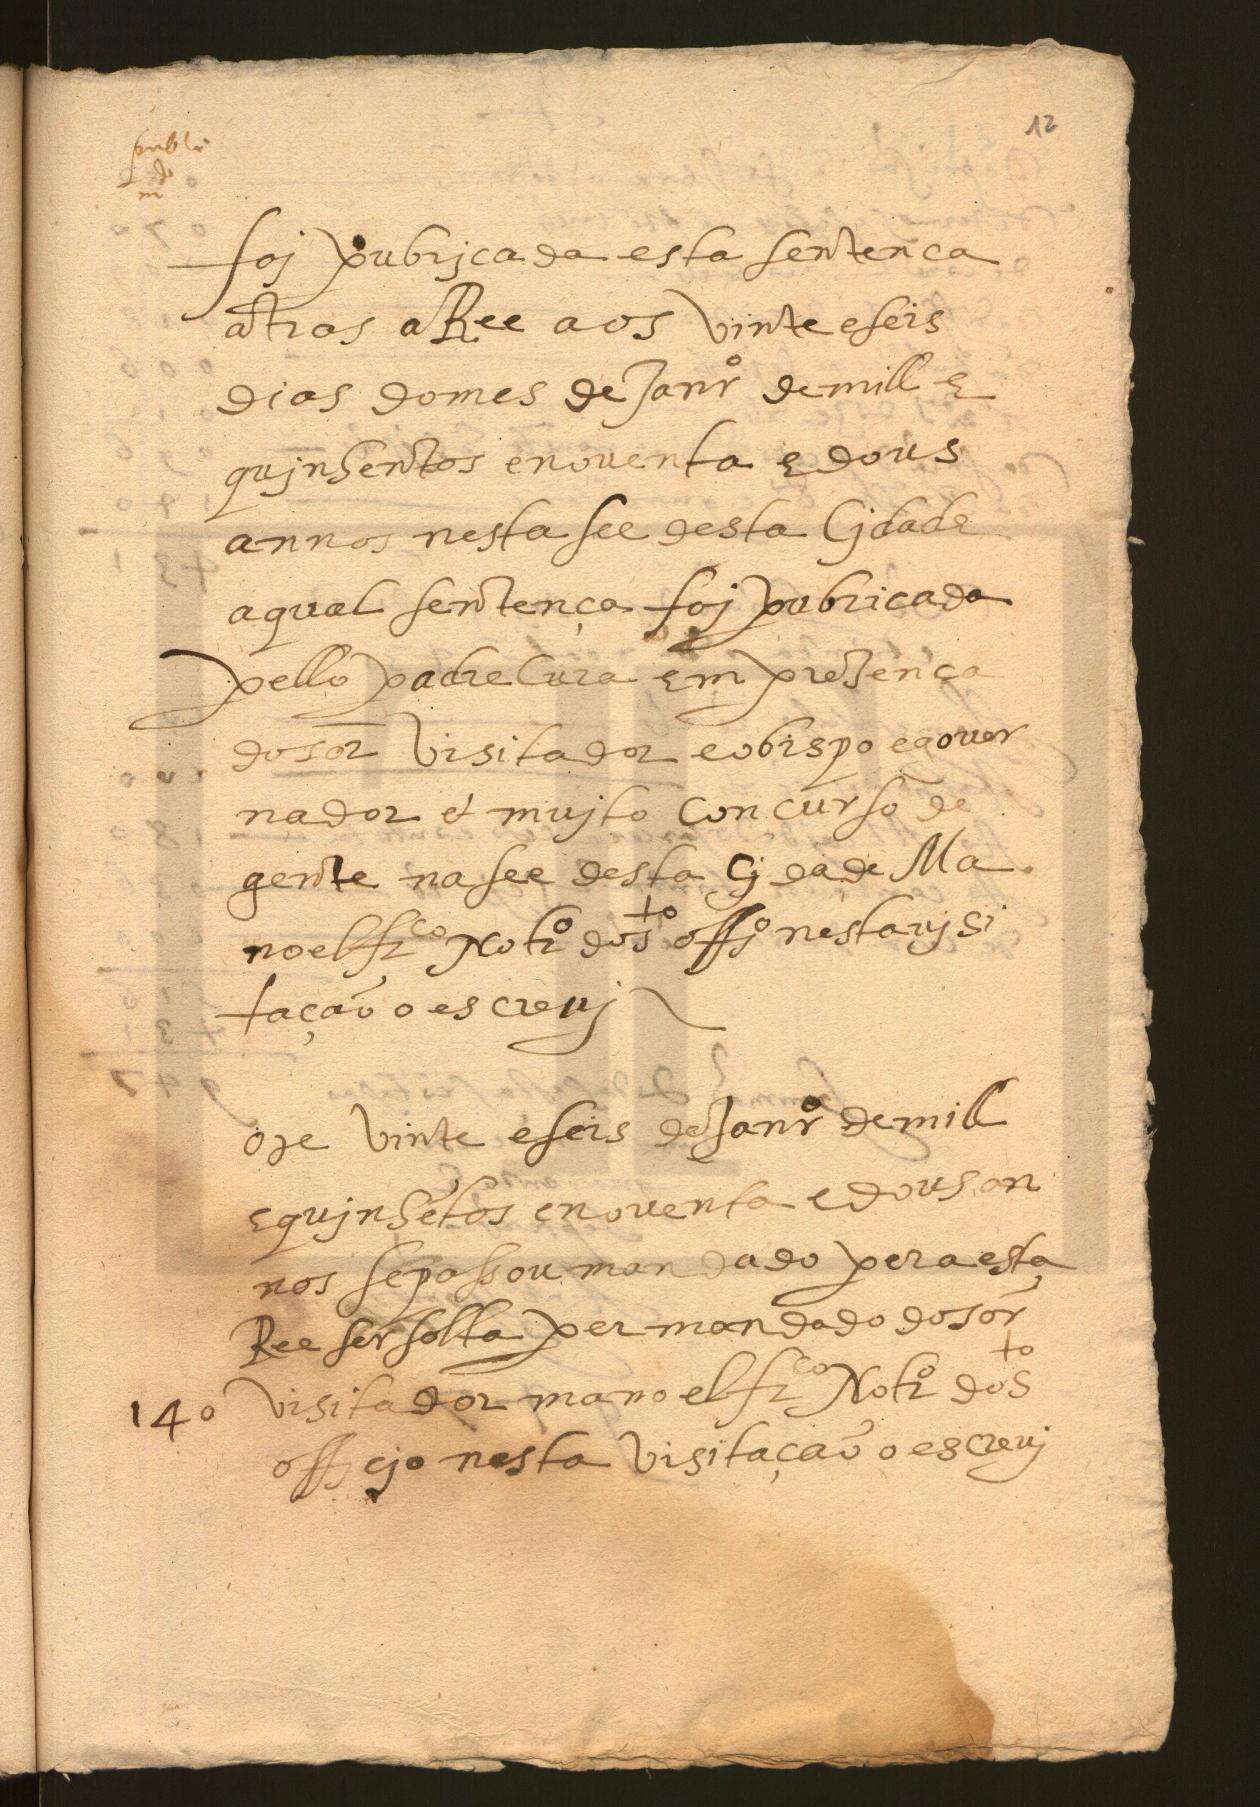 12
publi
foj pubrjcada esta sentenca
atras a Ree aos vinte e seis
dias do mes de Janrº de mill e
qujnhentos e noventa e dous
annos nesta see desta Cjdade
a qual sentença foj pubricada
pello padre Cura em presença
do sor visitador e obispo e gover
nador e mujto concurso de
gente na see desta Cjdade Ma
noel frco Notrº do sto offjº nesta vjsi
taçaõ o escrevj
oje vinte e seis de Janrº de mill
e quinhẽtos e noventa e dous an
nos se passou mandado pera esta
Ree ser solta per mandado do sor
visitador manoel frco Notrº do sto
140
offycjo nesta visitaçaõ o escrevj